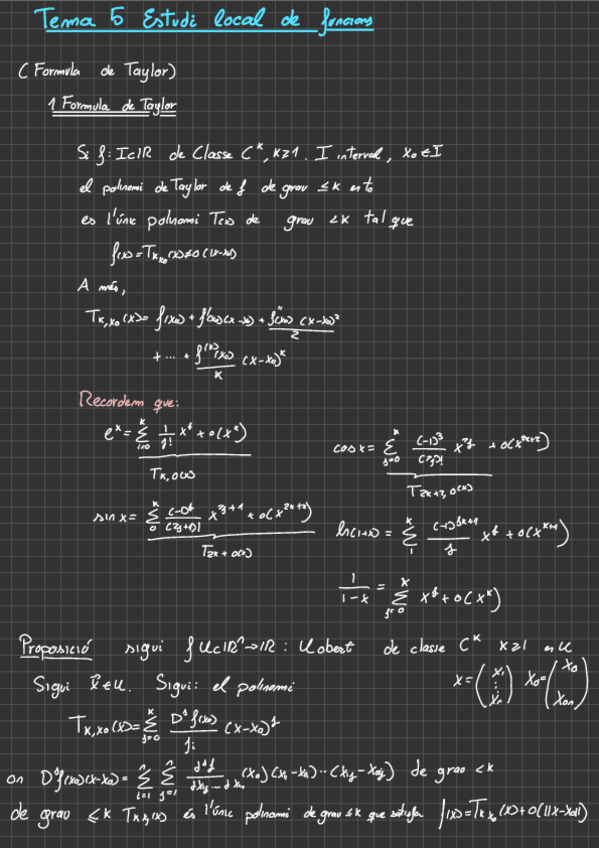 Tema 5 Estudi local de funcions
(Formula de Taylor)
1 Formula de Taylor
Si f: I⊂IR de Classe C^k, k≥1. I interval, x₀∈I
el polinomi de Taylor de f de grau ≤k en to
es l'únic polinomi T(x) de grau <k tal que
f(x)=T_{k,x₀}(x)+o(|x-x₀|)
A més,
T_{k,x₀}(x)= f(x₀)+f'(x₀)(x-x₀)+ f''(x₀)/2 (x-x₀)²
+ ... + f^{(k)}(x₀)/k (x-x₀)^k
Recordem que:
e^x = Σ_{j=0}^{k} 1/j! x^j + o(x^k)
T_{k,0}(x)
cos x = Σ_{j=0}^{k} (-1)^j/(2j)! x^{2j} + o(x^{2k+2})
T_{2k+2,0}(x)
sin x = Σ_{0}^{k} (-1)^j/(2j+1)! x^{2j+1} + o(x^{2k+2})
T_{2k+0}(x)
ln(1+x) = Σ_{1}^{k} /j x^j + o(x^{k+1})
1/(1-x) = Σ_{j=0}^{k} x^j + o(x^k)
Proposició sigui f U⊂IR^n→IR: U obert de classe C^k k≥1 en U
Sigui x̄∈U. Sigui: el polinomi
x=(x₁ ⋮ xₙ) x₀=(x₀ ⋮ x₀ₙ)
T_{k,x₀}(x)= Σ_{j=0}^{k} D^j f(x₀)/j! (x-x₀)^j
on D^j f(x₀)(x-x₀)= Σ_{i=1}^{n} Σ_{j=1}^{n} d^j f/dx_{ij}...dx_{i1} (x₀)(x_i-x₀)...(x_{ij}-x_{0ij}) de grau <k
de grau ≤k T_{k,x₀}(x) és l'únic polinomi de grau ≤k que satisfa f(x)=T_{k,x₀}(x)+o(||x-x₀||)